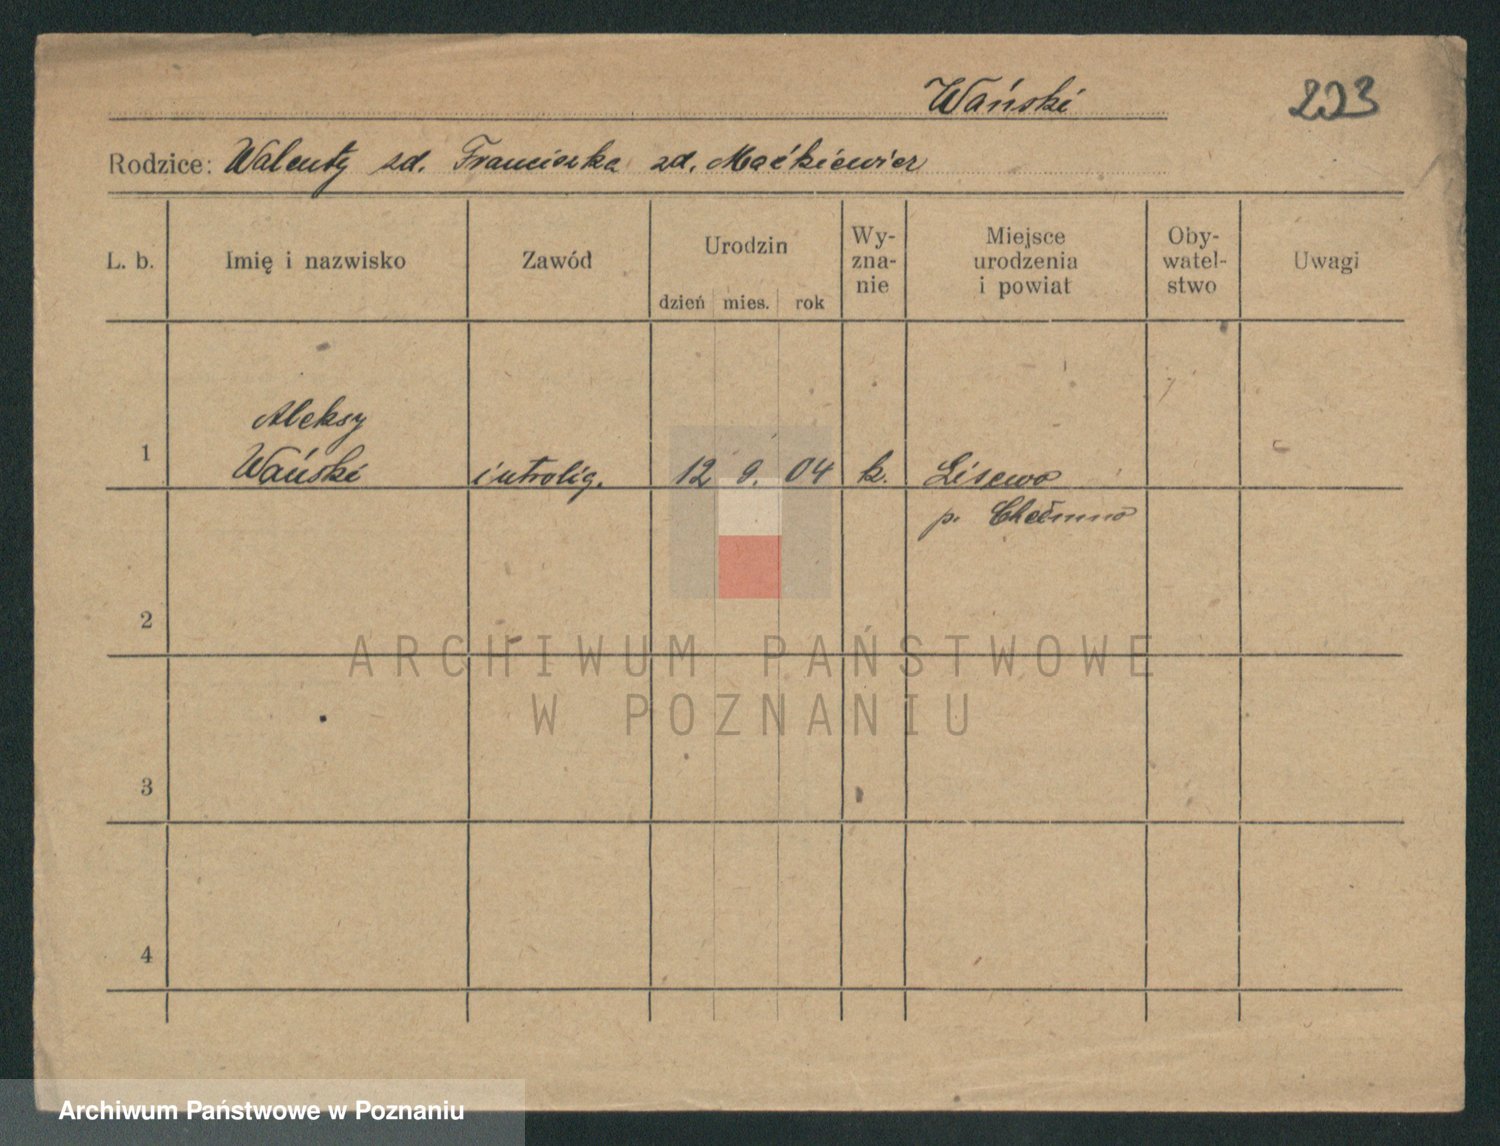 Wański
223
Rodzice: Walenty zd. Franciszka zd. Maćkiewicz
L. b.
Imię i nazwisko
Zawód
Urodzin
dzień mies. rok
Wy-
zna-
nie
Miejsce
urodzenia
i powiat
Oby-
watel-
stwo
Uwagi
Aleksy
1 Wański introlig. 12 9. 04 k. Lisewo
p. Chełmno
2
ARCHIWUM PAŃSTWOWE
W POZNANIU
3
4
Archiwum Państwowe w Poznaniu